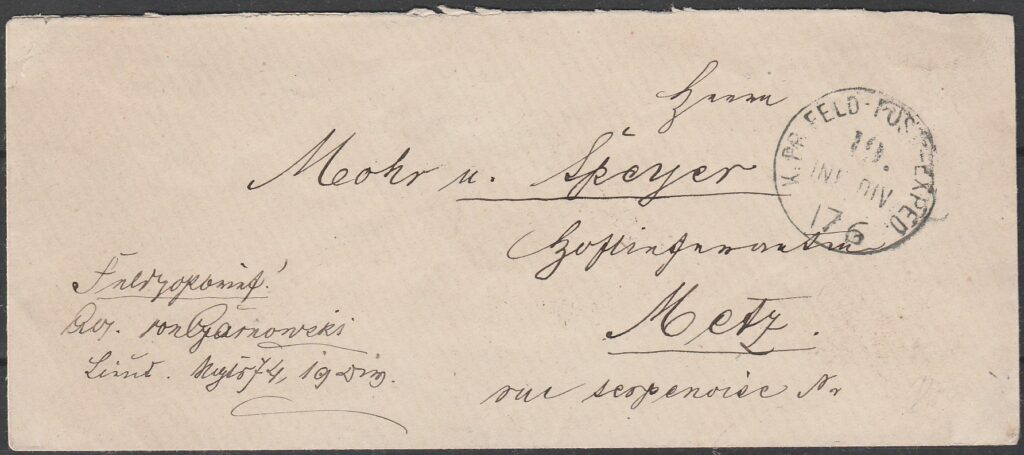 Herrn
Mohr u. Speyer
Hoflieferanten
Metz.
rue serpenoise Nr
Feldpostbrief!
von Czarnowski
Lieut. 74, 19 Div.
K. PR. FELD-POST-EXPED.
19.
INF. DIV
17 6